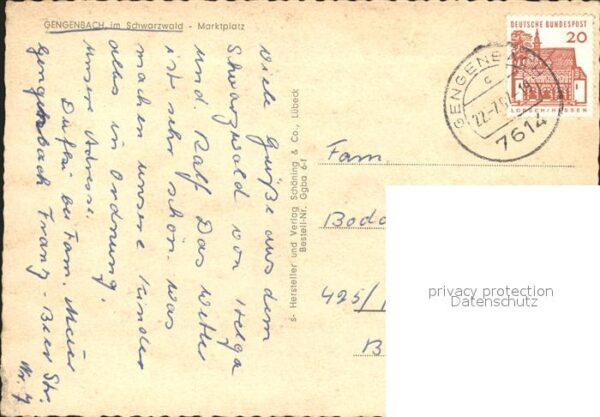 GENGENBACH, im Schwarzwald - Marktplatz
Viele Grüße aus dem
Schwarzwald von Helga
und Ralf Das Wetter
ist sehr schön. Was
machen unsere Kinder
alles in Ordnung?
unsere Adresse.
bei Fam. Meier
Gengenbach Franz-Beer Str.
Nr. 7
s- Hersteller und Verlag Schöning & Co., Lübeck
Bestell-Nr. Ggba 6-f
DEUTSCHE BUNDESPOST
20
LORSCH/HESSEN
GENGENB
c
22.-7.6
7614
Fam
Bodo
425/
B
privacy protection
Datenschutz